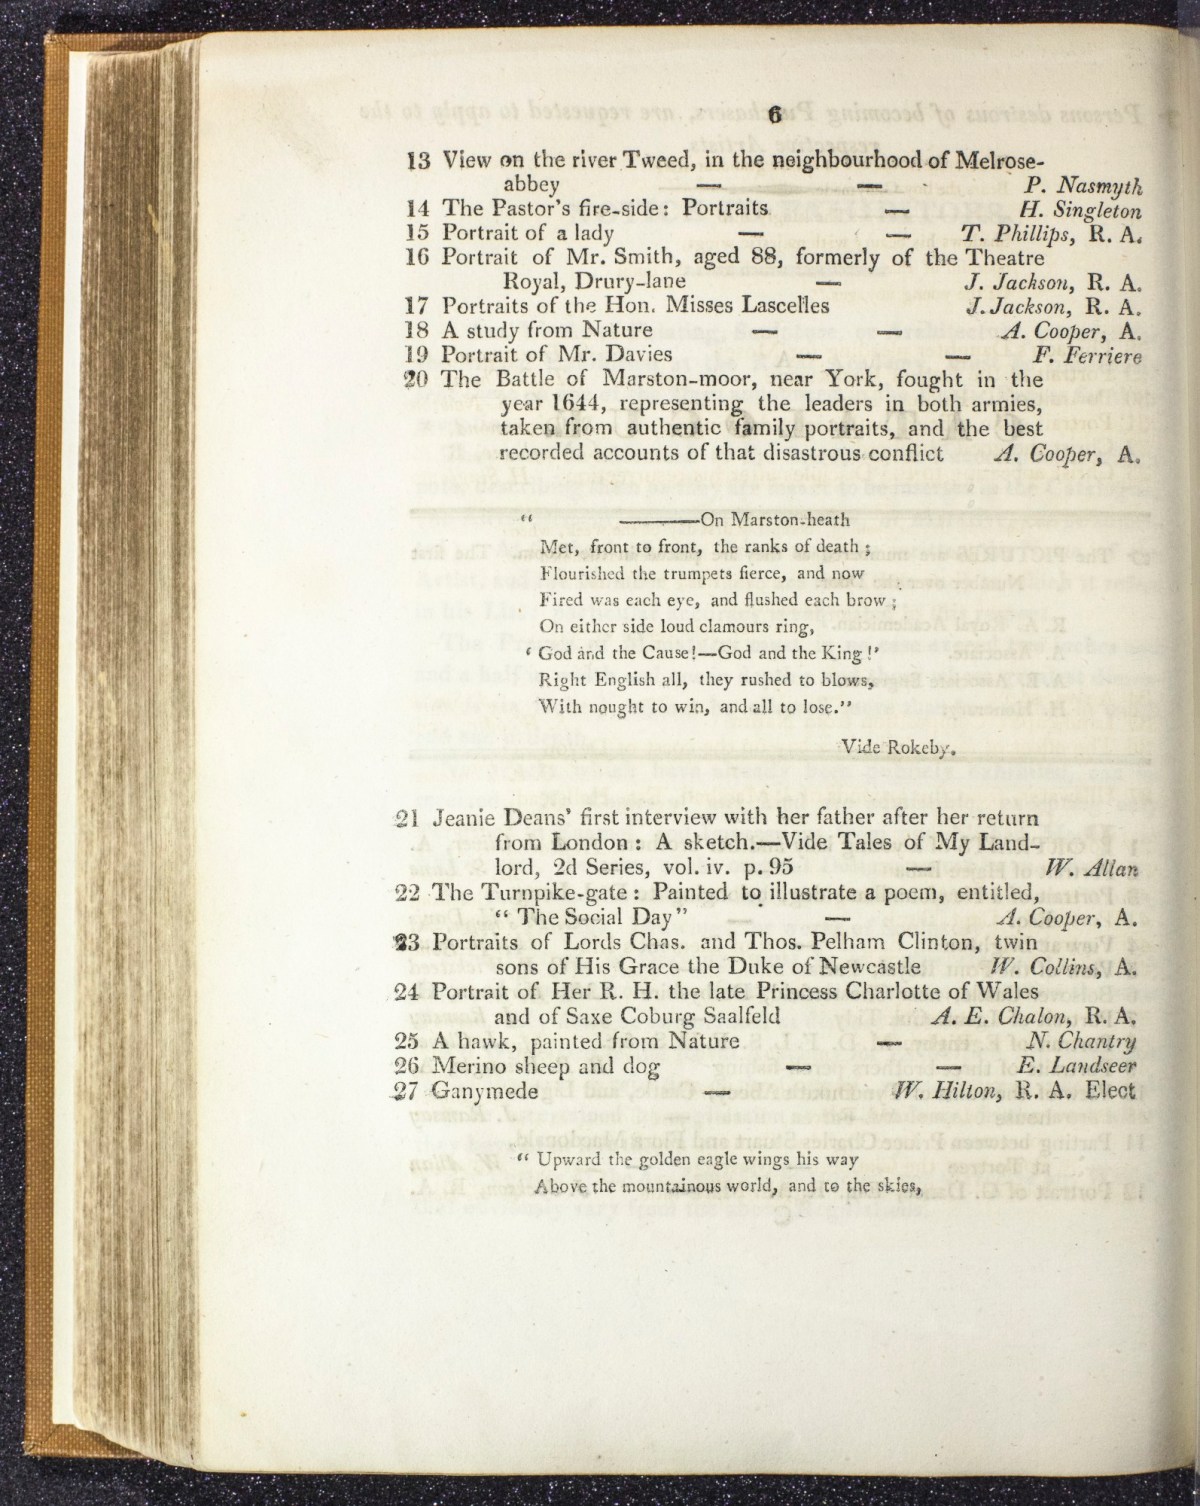 6
13 View on the river Tweed, in the neighbourhood of Melrose-
abbey — — P. Nasmyth
14 The Pastor's fire-side: Portraits — H. Singleton
15 Portrait of a lady — — T. Phillips, R. A.
16 Portrait of Mr. Smith, aged 88, formerly of the Theatre
Royal, Drury-lane — J. Jackson, R. A.
17 Portraits of the Hon. Misses Lascelles J. Jackson, R. A.
18 A study from Nature — — A. Cooper, A.
19 Portrait of Mr. Davies — — F. Ferriere
20 The Battle of Marston-moor, near York, fought in the
year 1644, representing the leaders in both armies,
taken from authentic family portraits, and the best
recorded accounts of that disastrous conflict A. Cooper, A.
“ ———On Marston-heath
Met, front to front, the ranks of death ;
Flourished the trumpets fierce, and now
Fired was each eye, and flushed each brow ;
On either side loud clamours ring,
‘ God and the Cause!—God and the King!’
Right English all, they rushed to blows,
With nought to win, and all to lose.”
Vide Rokeby.
21 Jeanie Deans' first interview with her father after her return
from London : A sketch.—Vide Tales of My Land-
lord, 2d Series, vol. iv. p. 95 — W. Allan
22 The Turnpike-gate : Painted to illustrate a poem, entitled,
“ The Social Day” — A. Cooper, A.
23 Portraits of Lords Chas. and Thos. Pelham Clinton, twin
sons of His Grace the Duke of Newcastle W. Collins, A.
24 Portrait of Her R. H. the late Princess Charlotte of Wales
and of Saxe Coburg Saalfeld A. E. Chalon, R. A.
25 A hawk, painted from Nature — N. Chantry
26 Merino sheep and dog — — E. Landseer
27 Ganymede — W. Hilton, R. A. Elect
“ Upward the golden eagle wings his way
Above the mountainous world, and to the skies,